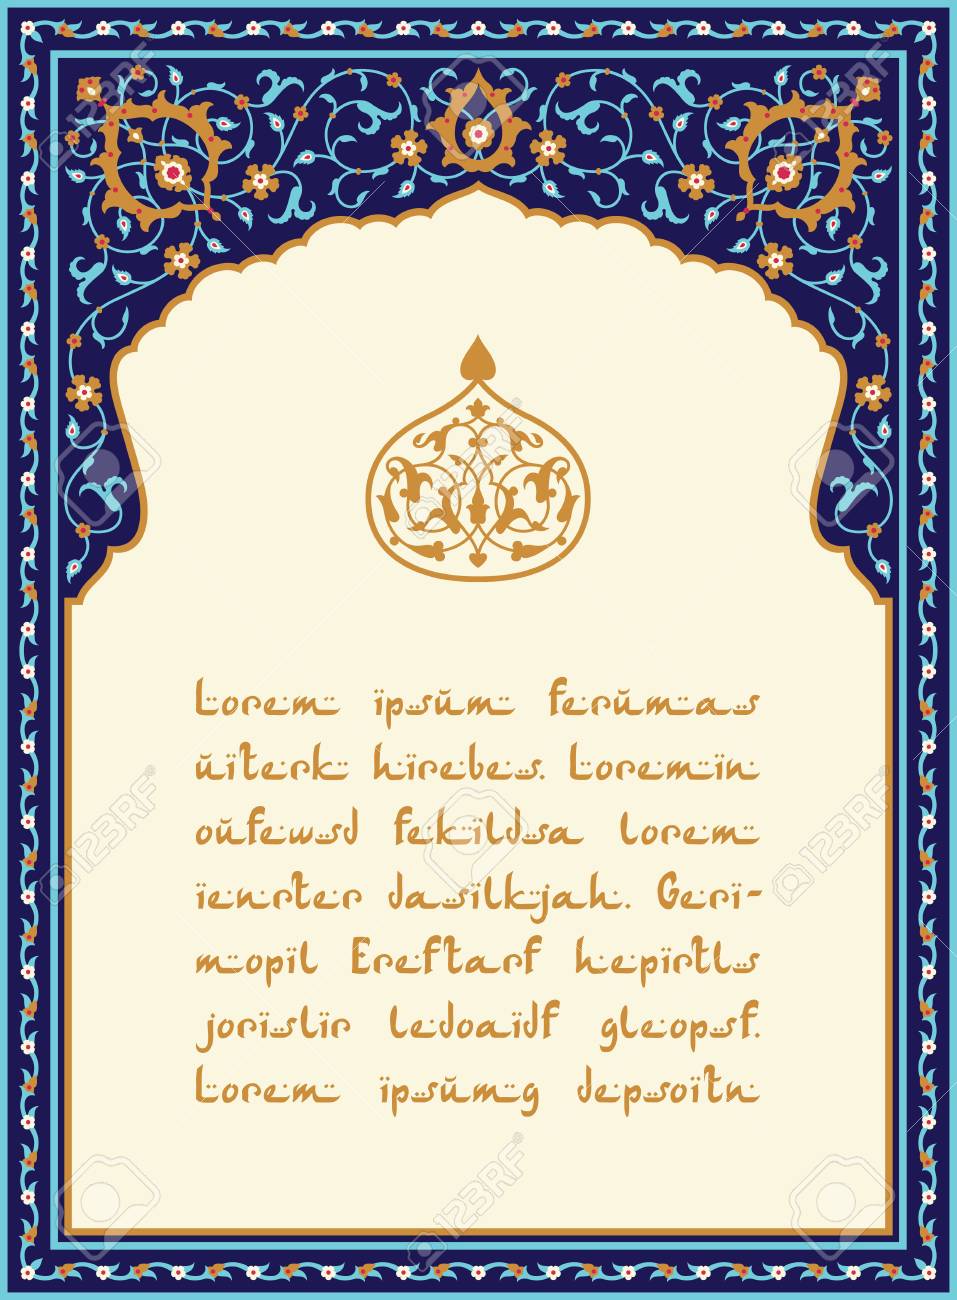 Lorem ipsum ferumas
uiterk hirebes. Loremin
oufewsd fekildsa lorem
ienrter dasilkjah. Geri-
mopil Ereftarf hepirtls
jorislir ledoaidf gleopsf.
Lorem ipsumg depsoitn
123RF
123RF
123RF
123RF
123RF
123RF
123RF